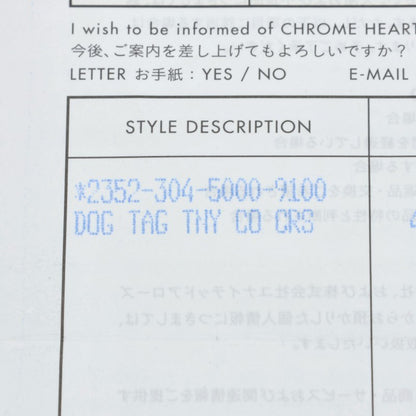 I wish to be informed of CHROME HEART
今後、ご案内を差し上げてもよろしいですか？
LETTER お手紙 : YES / NO E-MAIL
STYLE DESCRIPTION
*2352-304-5000-9100
DOG TAG TNY CO CR3